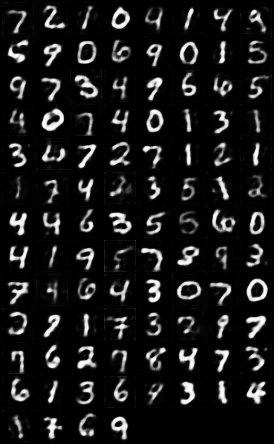 7 2 1 0 9 1 4 9
5 9 0 6 9 0 1 5
9 7 3 4 9 6 6 5
4 0 7 4 0 1 3 1
3 6 7 2 7 1 2 1
1 7 4 2 3 5 1 2
4 4 6 3 5 5 6 0
4 1 9 5 7 8 9 3
7 4 6 4 3 0 7 0
2 9 1 7 3 2 9 7
7 6 2 7 8 4 7 3
6 1 3 6 9 3 1 4
1 7 6 9